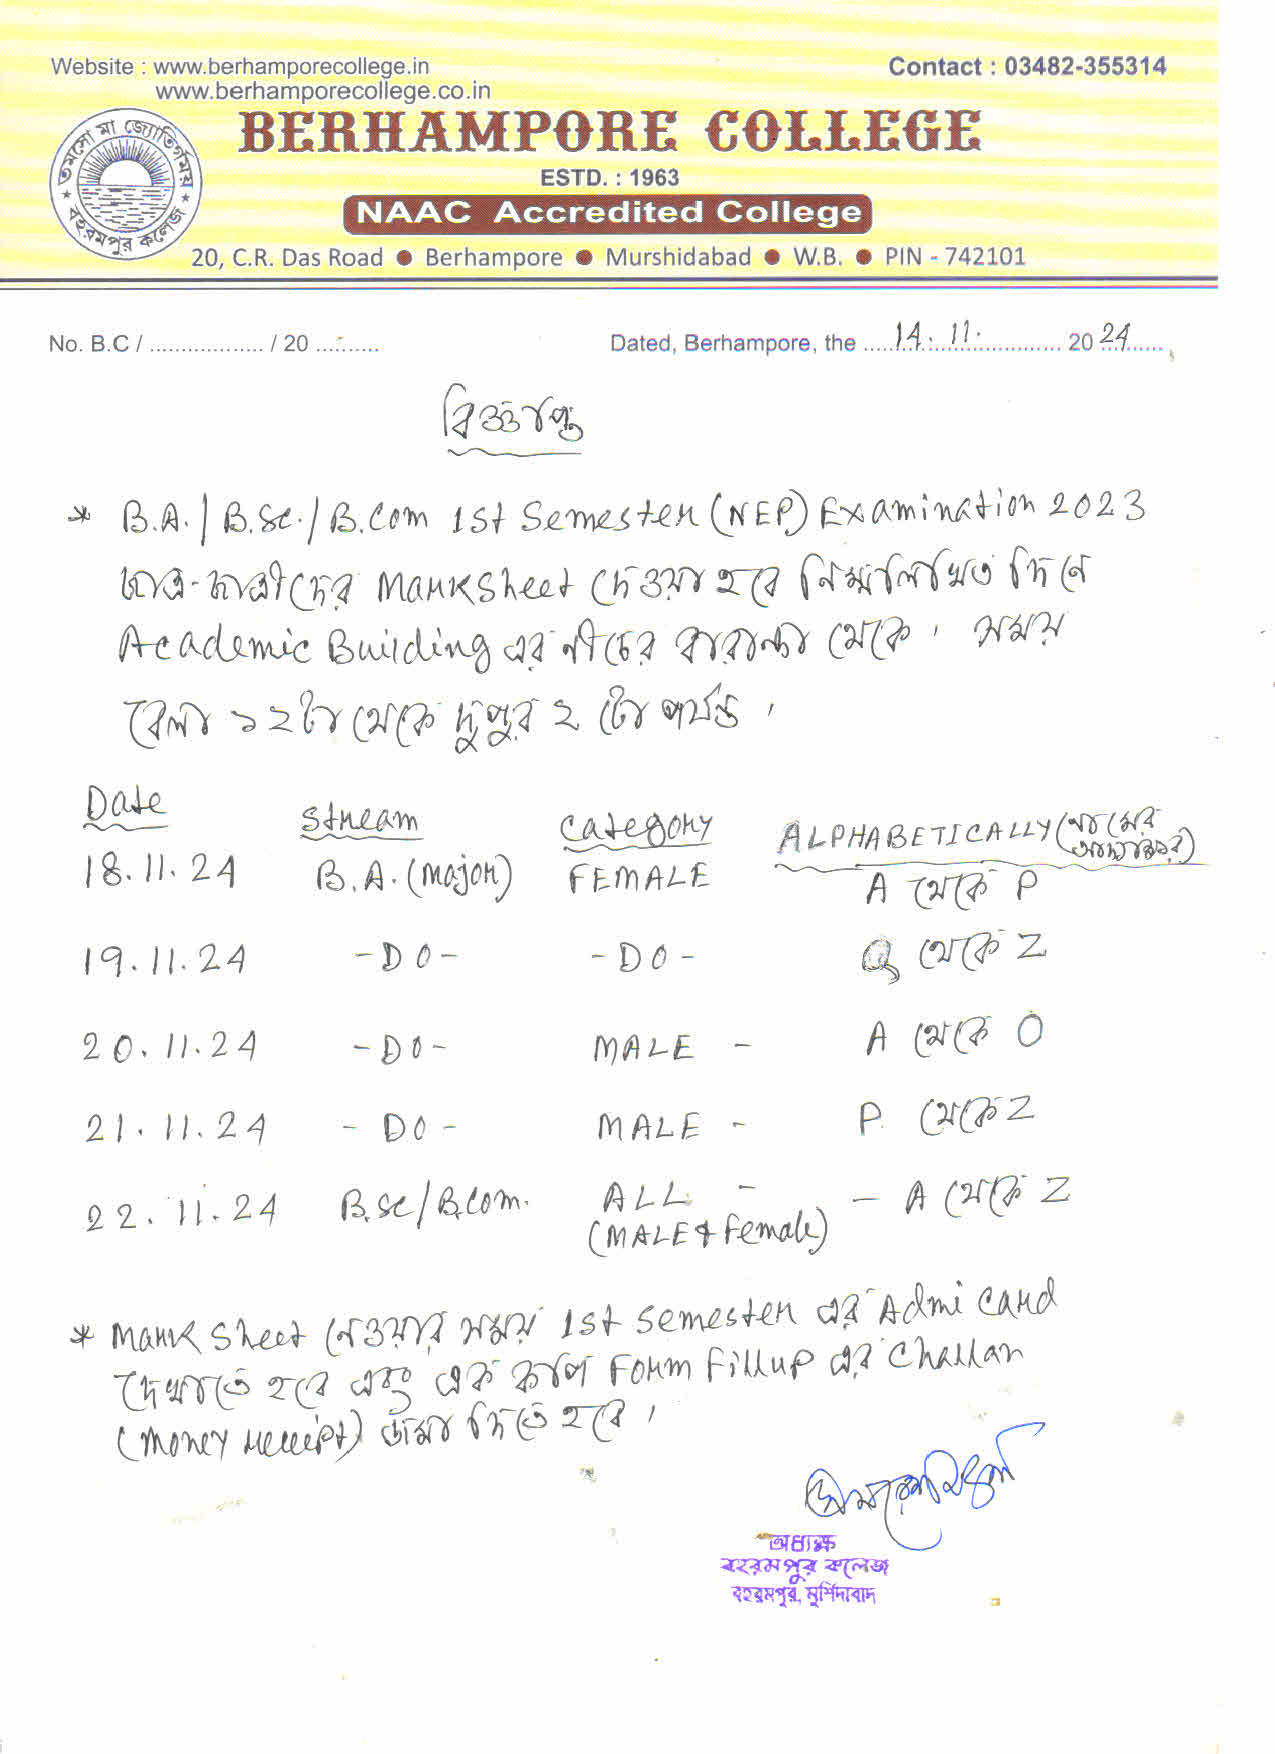 Website : www.berhamporecollege.in
Contact : 03482-355314
www.berhamporecollege.co.in
তমসো মা জ্যোতির্গময়
বহরমপুর কলেজ
BERHAMPORE COLLEGE
ESTD. : 1963
NAAC Accredited College
20, C.R. Das Road ● Berhampore ● Murshidabad ● W.B. ● PIN - 742101
No. B.C / .................. / 20 .......... Dated, Berhampore, the ..... 14. 11. ..... 20 24
বিজ্ঞপ্তি
* B.A./ B.Sc./ B.Com 1st Semester (NEP) Examination 2023
ছাত্র-ছাত্রীদের Marksheet দেওয়া হবে নিম্নলিখিত দিনে
Academic Building এর নীচের বারান্দা থেকে । সময়
বেলা ১২টা থেকে দুপুর ২ টো পর্যন্ত ।
Date Stream Category ALPHABETICALLY (নামের আদ্যাক্ষর)
18.11.24 B.A. (Major) FEMALE A থেকে P
19.11.24 -DO- -DO- Q থেকে Z
20.11.24 -DO- MALE - A থেকে O
21.11.24 -DO- MALE - P থেকে Z
22.11.24 B.Sc/B.Com. ALL - - A থেকে Z
(MALE & Female)
* Mark Sheet নেওয়ার সময় 1st Semester এর Admi Card
দেখাতে হবে এবং এক কপি Form Fillup এর Challan
(Money receipt) জমা দিতে হবে ।
অধ্যক্ষ
বহরমপুর কলেজ
বহরমপুর, মুর্শিদাবাদ